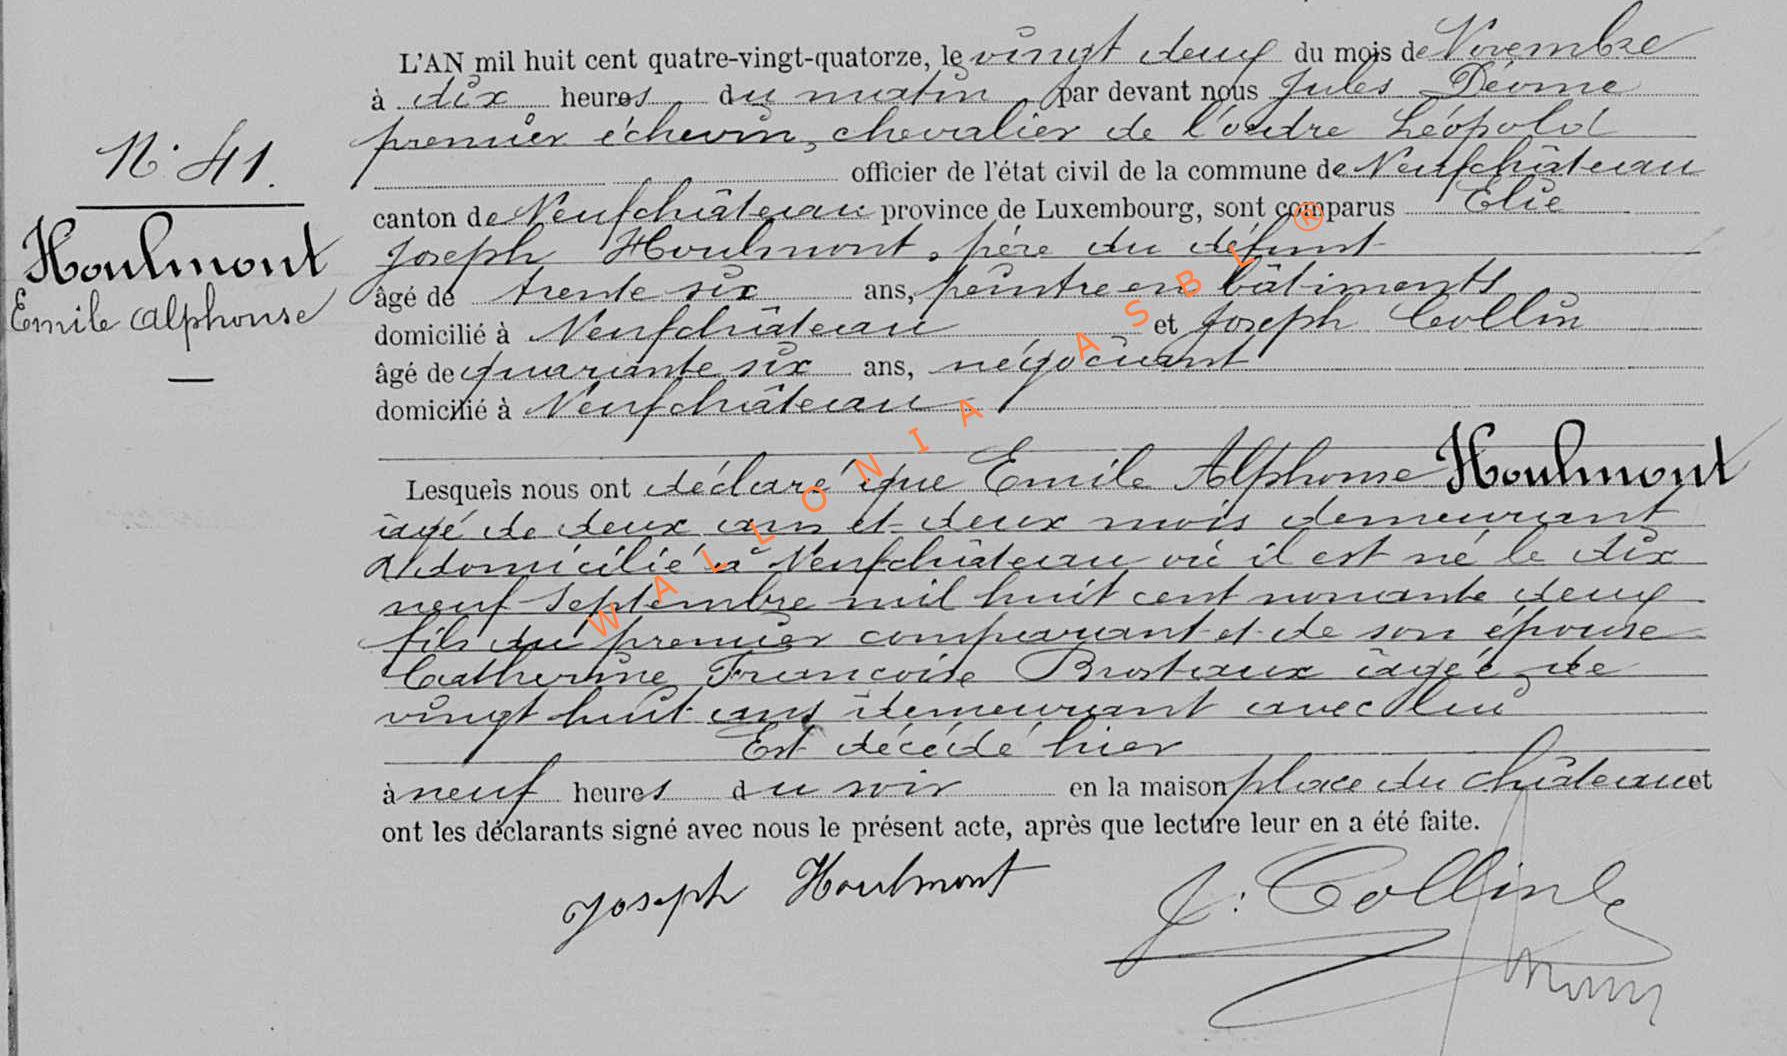 L'AN mil huit cent quatre-vingt-quatorze, le vingt deux du mois de Novembre
à dix heures du matin par devant nous Jules Déome
premier échevin, chevalier de l'ordre Léopold
officier de l'état civil de la commune de Neufchâteau
canton de Neufchâteau province de Luxembourg, sont comparus Elie
Joseph Houlmont, père du défunt
âgé de trente six ans, peintre en bâtiments
domicilié à Neufchâteau et Joseph Collin
âgé de quarante six ans, négociant
domicilié à Neufchâteau
N° 41.
Houlmont
Emile Alphonse
Lesquels nous ont déclaré que Emile Alphonse Houlmont
âgé de deux ans et deux mois demeurant
et domicilié à Neufchâteau où il est né le dix
neuf Septembre mil huit cent nonante deux
fils du premier comparant et de son épouse
Catherine Françoise Brosteaux âgée de
vingt huit ans demeurant avec lui
Est décédé hier
à neuf heures du soir en la maison place du château et
ont les déclarants signé avec nous le présent acte, après que lecture leur en a été faite.
Joseph Houlmont
J. Collin
WALLONIA ASBL ®